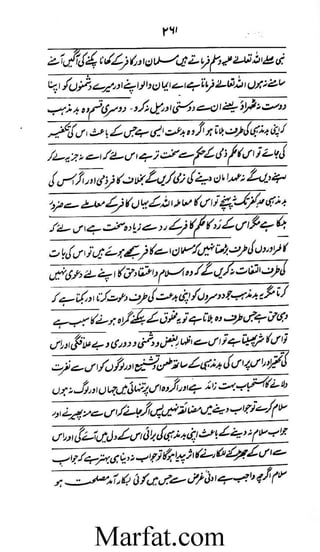 ۲۶۱
نبی صلے اللہ تعالےٰ علیہ وسلم فرماتے ہیں مسلمان اور کافر کے گھانا پکنے کی آگیں آمنے
سامنے نہ ہوں اللہ تعالےٰ فرماتا ہے اے ایمان والو اپنے اور میرے دشمنوں کو اپنا
دوست نہ ٹھہراؤ یعنے ان سے دوستی اور میل نہ کرو۔ دوسری قسم وہ بد مذہب
کہ اپنی بد مذہبی کی طرف بلاتا ہو اگر وہ بدعت ایسی ہے جس کے باعث اس کی تکفیر
کی جائے تو اس کا حکم ذمی کے حکم سے سخت تر ہے اس لئے کہ اسے نہ جزیہ لے کر
رہنے دیں گے نہ عہد امان دینے کی نرمی کریں گے بخلاف کافر ذمی اور اگر اس کی
بد مذہبی حد کفر تک نہ پہنچے تو اس کا معاملہ اللہ کے یہاں کافر کے معاملے سے ضرور
ہلکا ہے مگر اس کے رد کا حکم کافر کے رد سے زیادہ سخت ہے اس لئے کہ
کافر اوروں کی طرف بڑھتا نہیں کہ مسلمان اسے کافر سمجھے ہوئے ہیں تو اس کی بات
کی طرف التفات نہ کریں گے کہ وہ اسلام و اعتقاد حق کا اپنے لئے دعویٰ نہیں
کرتا مگر یہ بد مذہب جو دوسروں کو اپنی بدعت کی طرف دعوت کرتا اور بکتا ہے کہ
وہی حق ہے جس طرف وہ بلاتا ہے تو یہ مخلوق کے بہکنے گمراہ ہونے کا سبب ہے
تو اس کا شر پھیلتا ہے تو اس سے اظہار بغض و دشمنی و دوری و بے علاقگی اور اس
کی تحقیر اور اس پر اس کی بد مذہبی کے ساتھ طعن و تشنیع اور لوگوں کو اس سے نفرت
دلانے کا استحباب بہت زائد ہے اور اگر وہ اس پر تنہائی میں جہاں اور لوگ نہ ہوں
سلام کرے تو جواب دینے میں مضائقہ نہیں ہیں اگر جانے کہ اس سے منہ پھیرنے اور
جواب سلام نہ دینے کے باعث اپنی بد مذہبی کی برائی اس کے دل میں آئے گی اور اس
سے اس کے جھڑکنے للکارنے کا اثر پیدا ہوگا تو جواب نہ دینا ہی بہتر ہے کہ جواب
سلام اگرچہ واجب ہے ادنیٰ غرض سے جس میں کوئی بکار آمد مصلحت ہو
Marfat.com